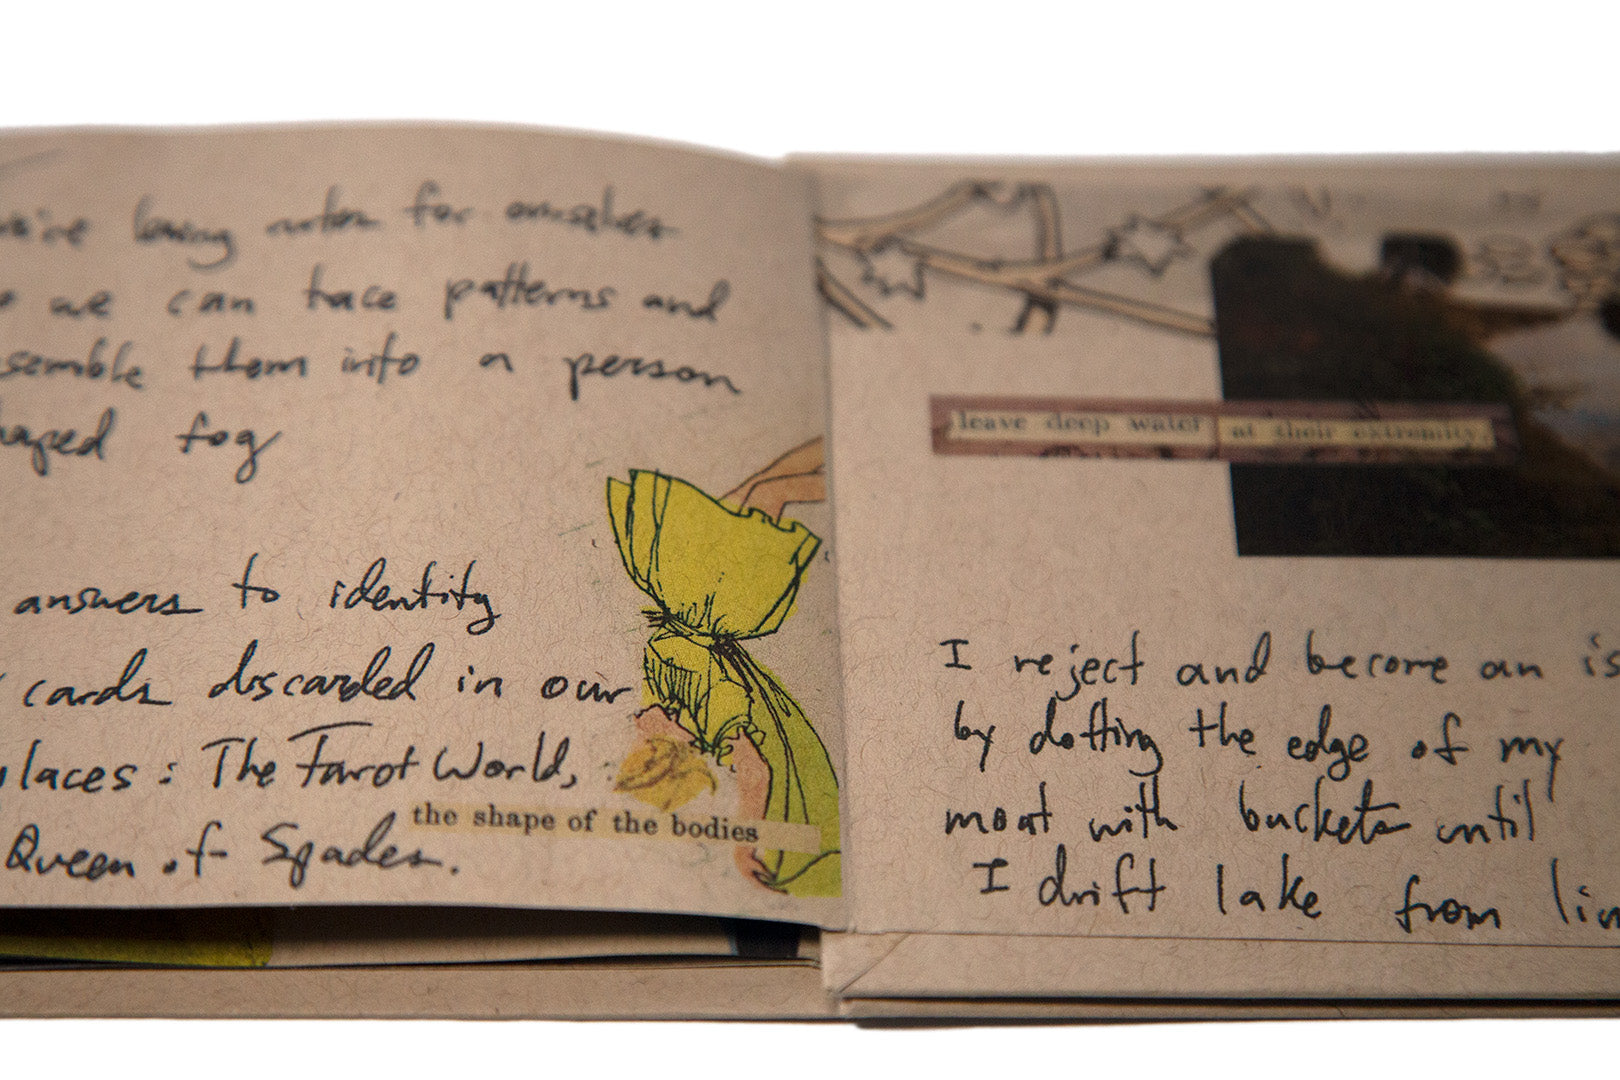 we're leaving notes for ourselves
we can trace patterns and
semble them into a person
haped fog
answers to identity
cards discarded in our
laces: The Tarot World,
the shape of the bodies
Queen of Spades.
leave deep water at their extremity,
I reject and become an is
by dotting the edge of my
moat with buckets until
I drift lake from lin